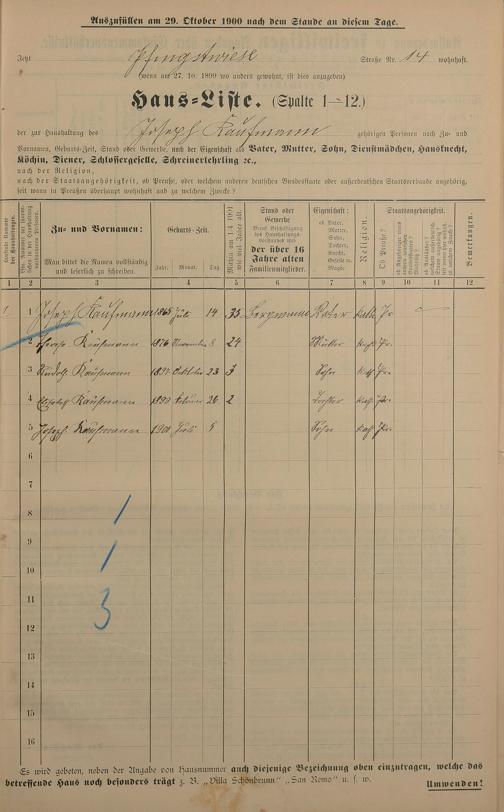 Auszufüllen am 29. Oktober 1900 nach dem Stande an diesem Tage.
Jetzt Pfingstwiese Straße Nr. 14 wohnhaft.
(wenn am 27. 10. 1899 wo anders gewohnt, ist dies anzugeben)
Haus-Liste. (Spalte 1—12.)
der zur Haushaltung des Joseph Kaufmann gehörigen Personen nach Zu- und
Vornamen, Geburts-Zeit, Stand oder Gewerbe, nach der Eigenschaft als Vater, Mutter, Sohn, Dienstmädchen, Hausknecht,
Köchin, Diener, Schlossergeselle, Schreinerlehrling ec.,
nach der Religion,
nach der Staatsangehörigkeit, ob Preuße, oder welchem anderen deutschen Bundesstaate oder außerdeutschen Staatsverbande angehörig,
seit wann in Preußen überhaupt wohnhaft und zu welchem Zwecke?
Zu- und Vornamen:
Man bittet die Namen vollständig
und leserlich zu schreiben.
Geburts-Zeit.
Jahr. Monat. Tag.
Stand oder
Gewerbe
der über 16
Jahre alten
Familienmitglieder.
Eigenschaft:
ob Vater,
Mutter,
Sohn,
Tochter,
Knecht,
Geselle u.
Magd
Religion.
Staatsangehörigkeit.
Ob Preuße?
Bemerkungen.
1 2 3 4 5 6 7 8 9 10 11 12
1 1 Joseph Kaufmann 1865 Juli 14 35 Bergmann Vater kath Pr.
2 Kaufmann 1876 November 8 24 Mutter kath Pr.
3 Rudolf Kaufmann 1897 Oktober 23 3 Sohn kath Pr.
4 Elisabeth Kaufmann 1899 Februar 26 2 Tochter kath Pr.
5 Joseph Kaufmann 1900 Juli 5 Sohn kath Pr.
6
7
8 1
9
10 1
11
12 3
13
14
15
16
Es wird gebeten, neben der Angabe von Hausnummer auch diejenige Bezeichnung oben einzutragen, welche das
betreffende Haus noch besonders trägt z. B. „Villa Schönbrunn“ „San Remo“ u. s. w. Umwenden!